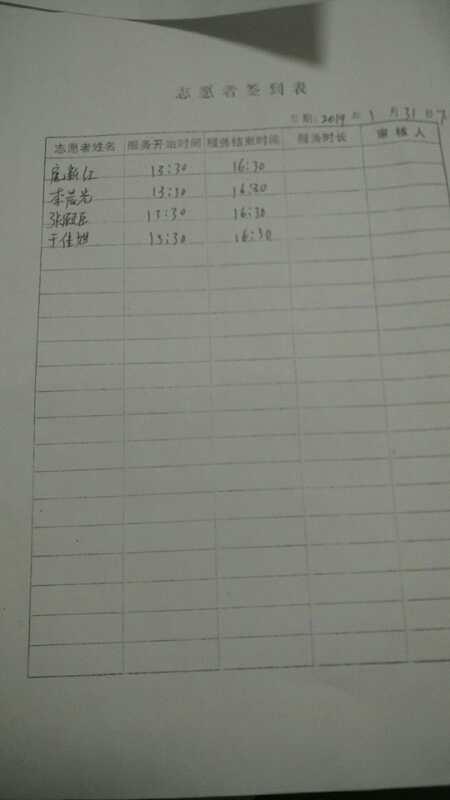 志愿者签到表
日期:2019 年 1 月 31 日
志愿者姓名 服务开始时间 服务结束时间 服务时长 审核人
13:30 16:30
李芸光 13:30 16:30
13:30 16:30
于佳旭 13:30 16:30